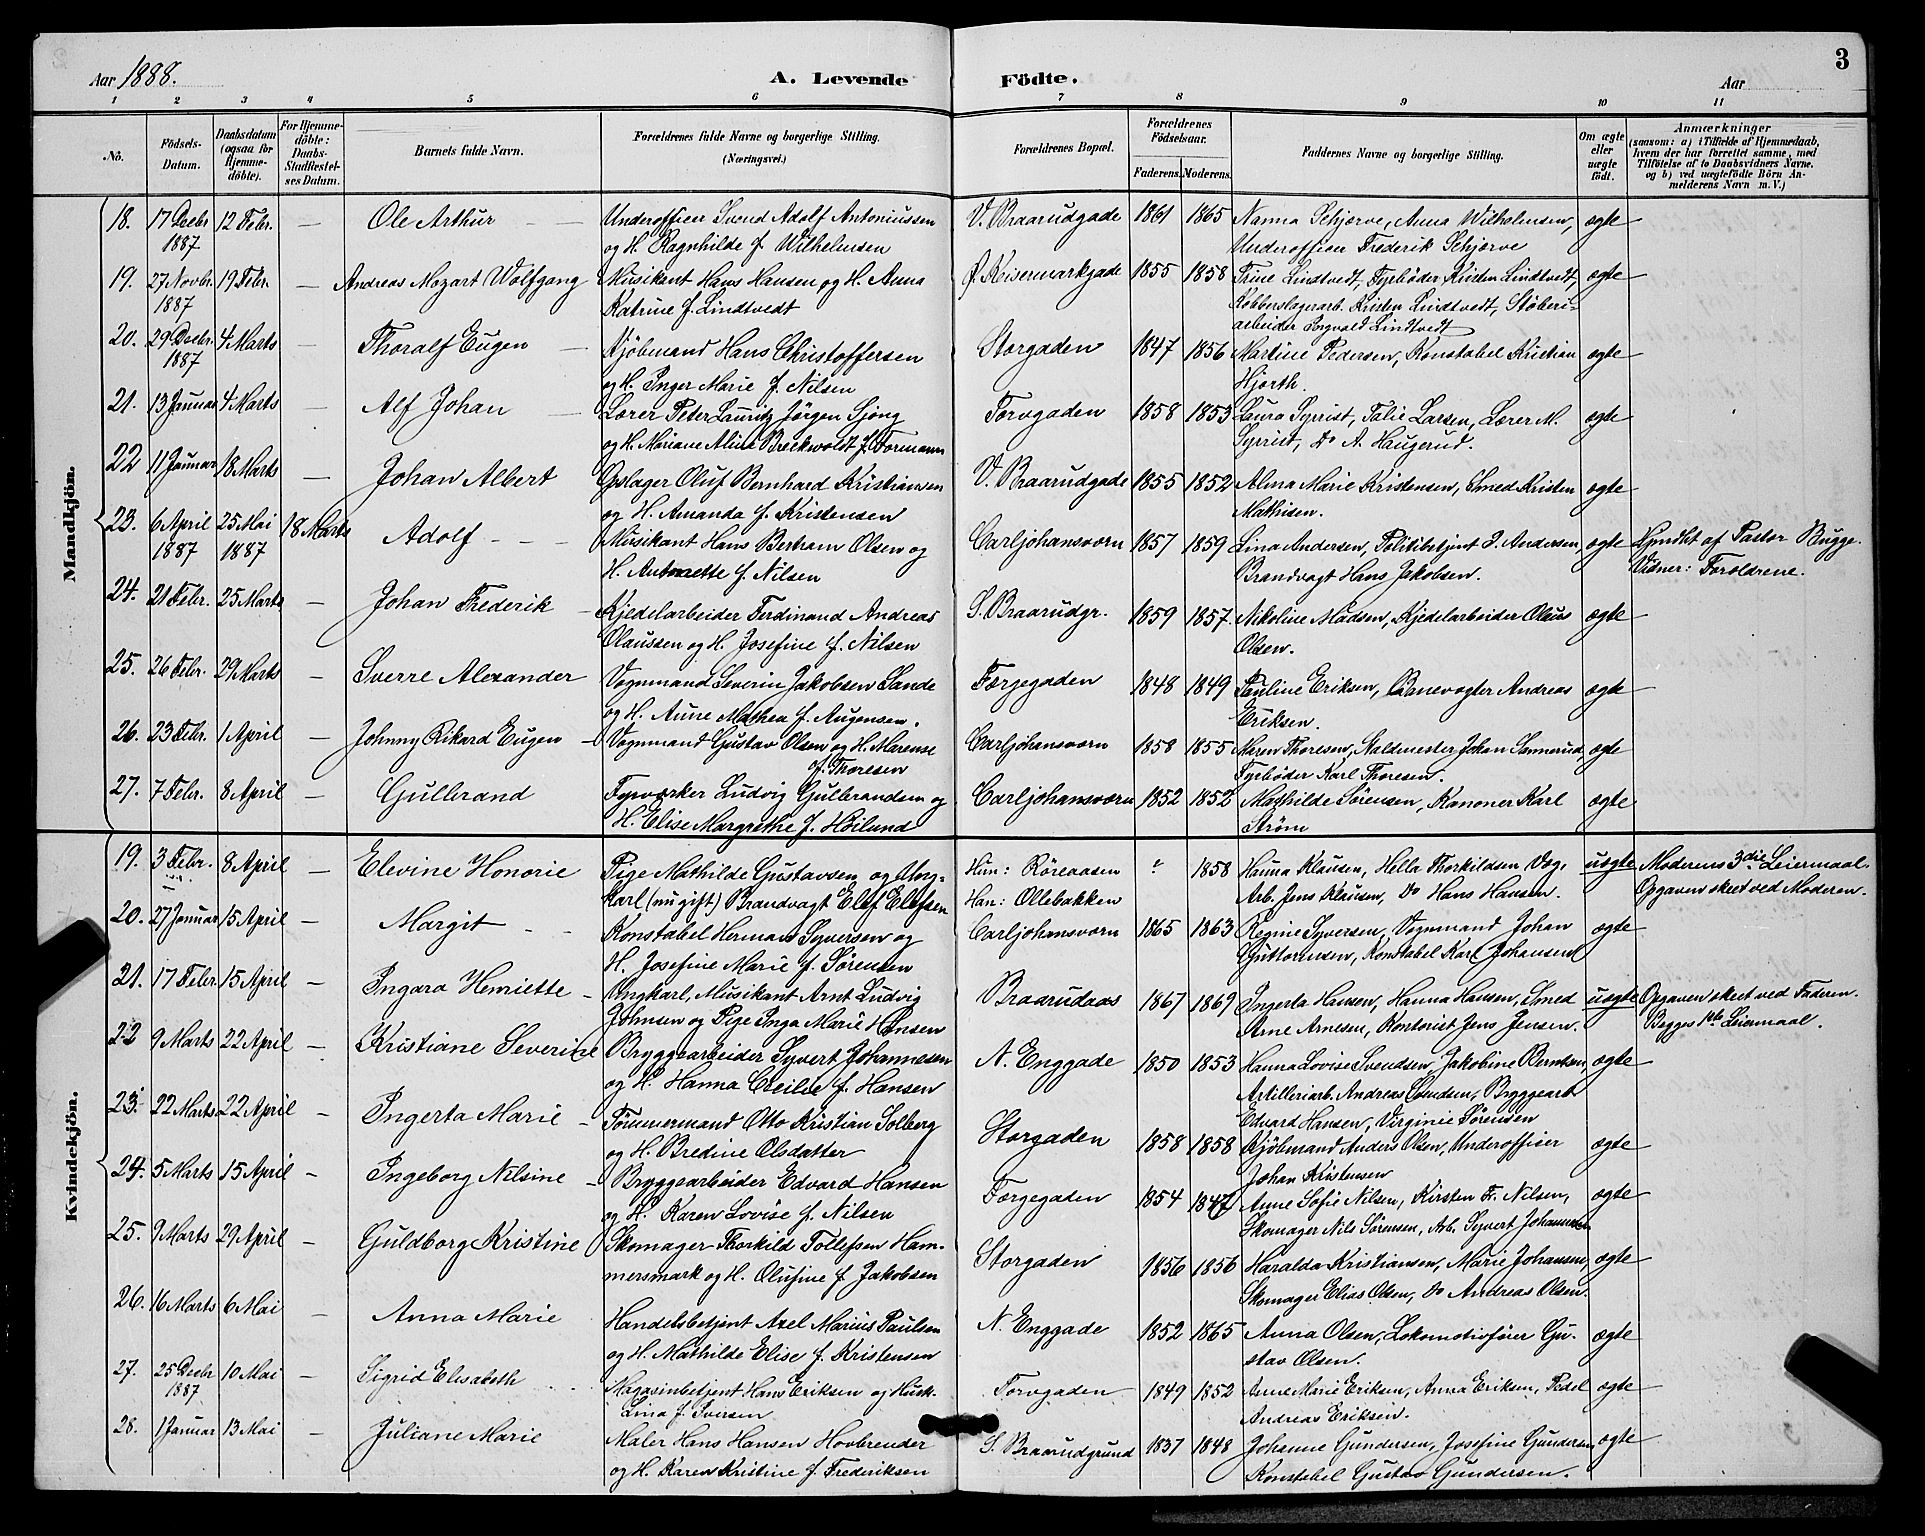 Aar 1888.
A. Levende Födte.
Aar
3
1 2 3 4 5 6 7 8 9 10 11
No. Födsels-Datum. Daabsdatum (ogsaa for Hjemme-döbte). For Hjemme-döbte: Daabs-Stadfæstel-ses Datum. Barnets fulde Navn. Forældrenes fulde Navne og borgerlige Stilling. (Næringsvei.) Forældrenes Bopæl. Forældrenes Födselsaar. Faderens. Moderens. Faddernes Navne og borgerlige Stilling. Om ægte eller uægte födt. Anmærkninger (saasom: a) i Tilfælde af Hjemmedaab, hvem der har forrettet samme, med Tilföielse af to Daabsvidners Navne, og b) ved uægtefödte Börn An-melderens Navn m. V.)
Mandkjön.
18. 17 Decbr 12 Febr. — Ole Arthur Underofficer Svend Adolf Antoniussen V. Braarudgade 1861 1865 Nanna Schjerve, Anna Wilhelmsen, ægte
1887 og H. Ragnhilde f. Wilhelmsen Underofficer Frederik Schjerve
19. 27 Novbr. 19 Febr. — Andreas Mozart Wolfgang Musikant Hans Hansen og H. Anna 1855 1858 Trine Lindtvedt, Fyrbøder Kristen Lindtvedt, ægte
1887 Katrine f. Lindtvedt Kobberslagerarb. Kristen Lindtvedt, Støberi-
arbeider Ingvald Lindtvedt
20. 29 Decbr. 4 Marts Thoralf Eugen — Kjöbmand Hans Christoffersen Storgaden 1847 1856 Martine Pedersen, Konstabel Kristian ægte
1887 og H. Inger Marie f. Nilsen Hjorth.
21. 13 Januar 4 Marts — Alf Johan — Lærer Peter Lauritz Jørgen Sjong Torvgaden 1858 1853 Laura Syrrist, Talie Larsen, Lærer M. ægte
og H. Mariane Aline Breckwoldt f. Formann Syrrist, Do A. Haugerud.
22 11 Januar 18 Marts — Johan Albert Opslager Oluf Bernhard Kristiansen V. Braarudgade 1855 1852 Alma Marie Kristensen, Smed Kristen ægte
og H. Amanda f. Kristensen Mathisen.
23. 6 April 25 Mai 18 Marts Adolf - - - Musikant Hans Bertram Olsen og Carljohansværn 1857 1859 Lina Andersen, Politibetjent P. Andersen, ægte af Pastor Bugge.
1887 1887 H. Antonette f. Nilsen Brandvagt Hans Jakobsen. Vidner: Forældrene.
24. 21 Febr. 25 Marts — Johan Frederik — Kjedelarbeider Ferdinand Andreas S. Braarudgr. 1859 1857. Nikoline Madsen, Kjedelarbeider Olaus ægte
Olaussen og H. Josefine f. Nilsen Olsen.
25. 26 Febr. 29 Marts — Sverre Alexander Vognmand Severin Jakobsen Sande Færgegaden 1848 1849 Pauline Eriksen, Banevogter Andreas ægte
og H. Anne Mathea f. Augensen. Eriksen.
26. 23 Febr. 1 April — Johnny Rikard Eugen — Vognmand Gustav Olsen og H. Marense Carljohansværn 1858 1855 Maren Thoresen, Maldmester Johan Sannerud, ægte
f. Thoresen Fyrbøder Karl Thoresen.
27. 7 Febr. 8 April — Gulbrand Fyrværker Ludvig Gulbrandsen og Carljohansværn 1852 1852 Mathilde Sørensen, Kanoner Karl ægte
H. Elise Margrethe f. Høilund Strøm
Kvindekjön.
19. 3 Febr. 8 April — Elevine Honorie Pige Mathilde Gustavsen og Ung- Hun: Röreaasen 1858 Hanna Klausen, Hella Thorkildsen, Væg. uægte Moderens 3die Leiermaal.
karl (nu gift) Brandvagt Elef Elefsen Han: Ollebakken Arb. Jens Klausen, Do Hans Hansen. Opgaven skeet ved Moderen.
20. 27 Januar 15 April Margit - - Konstabel Herman Syversen og Carljohansværn 1865 1863 Regine Syversen, Vognmand Johan ægte
H. Josefine Marie f. Sørensen Guttormsen, Konstabel Karl Johansen
21. 17 Febr. 15 April — Ingara Henriette — Ungkarl, Musikant Arnt Ludvig Braarudaas 1867 1869 Ingerta Hansen, Hanna Hansen, Smed uægte Opgaven skeet ved Faderen.
Johnsen og Pige Inga Marie Hansen Arne Arnesen, Kontorist Jens Jensen. Begges 1ste Leiermaal.
22 9 Marts 22 April — Kristiane Severine Bryggearbeider Syvert Johannesen N. Enggade 1850 1853 Hanna Lovise Svendsen, Jakobine Berntsen, ægte
og H. Hanna Cecilie f. Hansen Artilleriarb. Andreas Svendsen, Bryggearb
Edvard Hansen, Virginie Sørensen
23. 22 Marts 22 April — Ingerta Marie — Tömmermand Otto Kristian Solberg Storgaden 1858 1858 Kjöbmand Anders Olsen, Underofficer ægte
og H. Bredine Olsdatter Johan Kristensen
24. 5 Marts 15 April — Ingeborg Nilsine — Bryggearbeider Edvard Hansen Færgegaden 1854 1847 Anne Sofie Nilsen, Kirsten F. Nilsen, ægte
og H. Karen Lovise f. Nilsen Skomager Nils Sørensen, Arb. Syvert Johannesen
25. 9 Marts 29 April — Guldborg Kristine Skomager Thorkild Tollefsen Ham- Storgaden 1856 1856 Haralda Kristiansen, Marie Johansen, ægte
mersmark og H. Olufine f. Jakobsen Skomager Elias Olsen, Do Andreas Olsen.
26. 16 Marts 6 Mai — Anna Marie Handelsbetjent Axel Marius Paulsen N. Enggade 1852 1865 Anna Olsen, Lokomotivförer Gu- ægte
og H. Mathilde Elise f. Kristensen stav Olsen.
27. 25 Decbr 10 Mai — Sigrid Elisabeth Magasinbetjent Hans Eriksen og Hust. Torvgaden 1849 1852 Anne Marie Eriksen, Anna Eriksen, Pedel ægte
1887 Lina f. Iversen Andreas Eriksen.
28. 1 Januar 13 Mai — Juliane Marie Maler Hans Hansen Hovbrender S. Braarudgrund 1837 1848 Johanne Gundersen, Josefine Gundersen, ægte
og H. Karen Kristine f. Frederiksen Konstabel Gustav Gundersen.